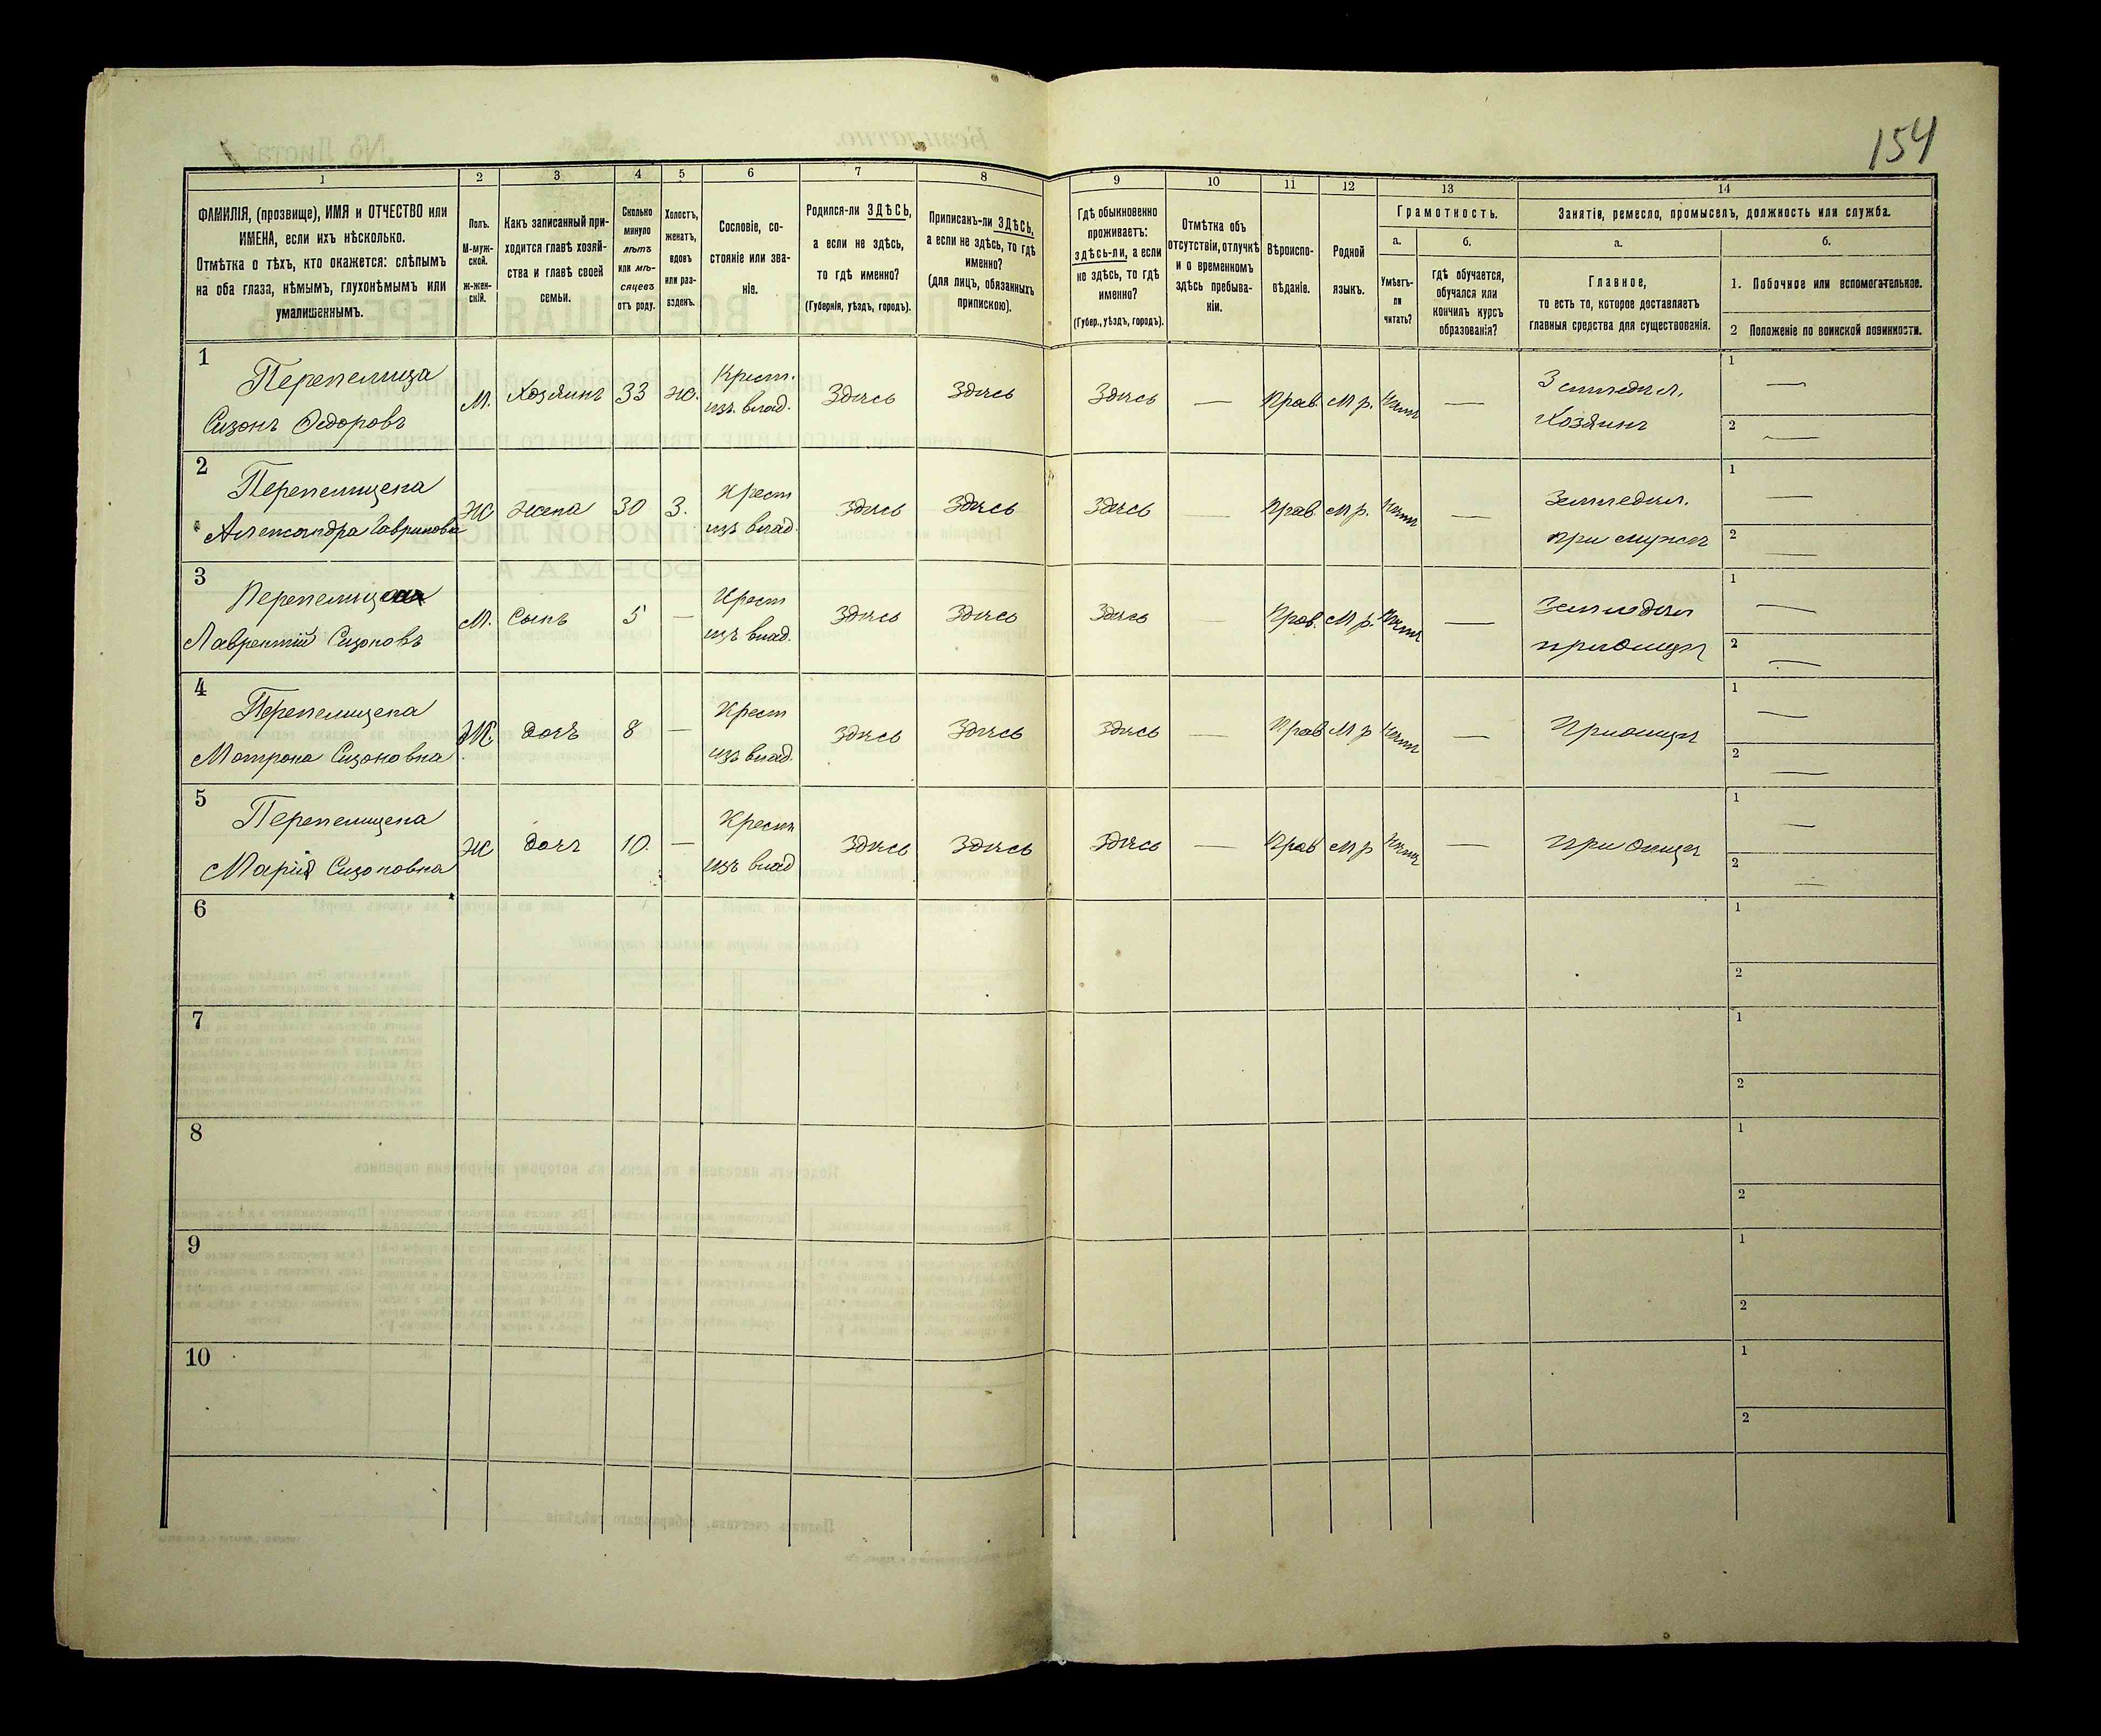 154
1
2
3
4
5
6
7
8
9
10
11
12
13
14
ФАМИЛІЯ, (прозвище), ИМЯ и ОТЧЕСТВО или
ИМЕНА, если ихъ нѣсколько.
Отмѣтка о тѣхъ, кто окажется: слѣпымъ
на оба глаза, нѣмымъ, глухонѣмымъ или
умалишеннымъ.
Полъ.
М-муж-
ской.
Ж-жен-
скій.
Какъ записанный при-
ходится главѣ хозяй-
ства и главѣ своей
семьи.
Сколько
минуло
лѣтъ
или мѣ-
сяцевъ
отъ роду.
Холостъ,
женатъ,
вдовъ
или раз-
веденъ.
Сословіе, со-
стояніе или зва-
ніе.
Родился-ли ЗДѢСЬ,
а если не здѣсь,
то гдѣ именно?
(Губернія, уѣздъ, городъ).
Приписанъ-ли ЗДѢСЬ,
а если не здѣсь, то гдѣ
именно?
(для лицъ, обязанныхъ
припискою).
Гдѣ обыкновенно
проживаетъ:
здѣсь-ли, а если
не здѣсь, то гдѣ
именно?
(Губер., уѣздъ, городъ).
Отмѣтка объ
отсутствіи, отлучкѣ
и о временномъ
здѣсь пребыва-
ніи.
Вѣроиспо-
вѣданіе.
Родной
языкъ.
Грамотность.
а.
Умѣетъ-
ли
читать?
б.
гдѣ обучается,
обучался или
кончилъ курсъ
образованія?
Занятіе, ремесло, промыселъ, должность или служба.
а.
Главное,
то есть то, которое доставляетъ
главныя средства для существованія.
б.
1. Побочное или вспомогательное.
2 Положеніе по воинской повинности.
1
Перепелица
Сизонъ Ѳедоровъ
М. Хозяинъ 33 Ж.
Крест.
изъ влад.
Здѣсь Здѣсь Здѣсь — Прав. М р. Нѣтъ —
Земледѣл.
Хозяинъ
1 —
2 —
2
Перепелицена
Александра Гаврилова
Ж жена 30 З.
Крест
изъ влад.
Здѣсь Здѣсь Здѣсь — Прав. М р. Нѣтъ —
Земледѣл.
при мужѣ
1 —
2 —
3
Лаврентій Сизоновъ
М. Сынъ 5 —
Крест
изъ влад.
Здѣсь Здѣсь Здѣсь — Прав. М р. Нѣтъ —
Земледѣл
приотцѣ
1 —
2 —
4
Перепелицена
Мотрона Сизоновна
Ж. дочъ 8 —
Крест
изъ влад.
Здѣсь Здѣсь Здѣсь — Прав М р Нѣтъ —
Приотцѣ
1 —
2 —
5
Перепелицена
Марія Сизоновна
Ж дочъ 10. —
Крест
изъ влад
Здѣсь Здѣсь Здѣсь — Прав М р Нѣтъ —
при отцѣ
1 —
2 —
6
1
2
7
1
2
8
1
2
9
1
2
10
1
2